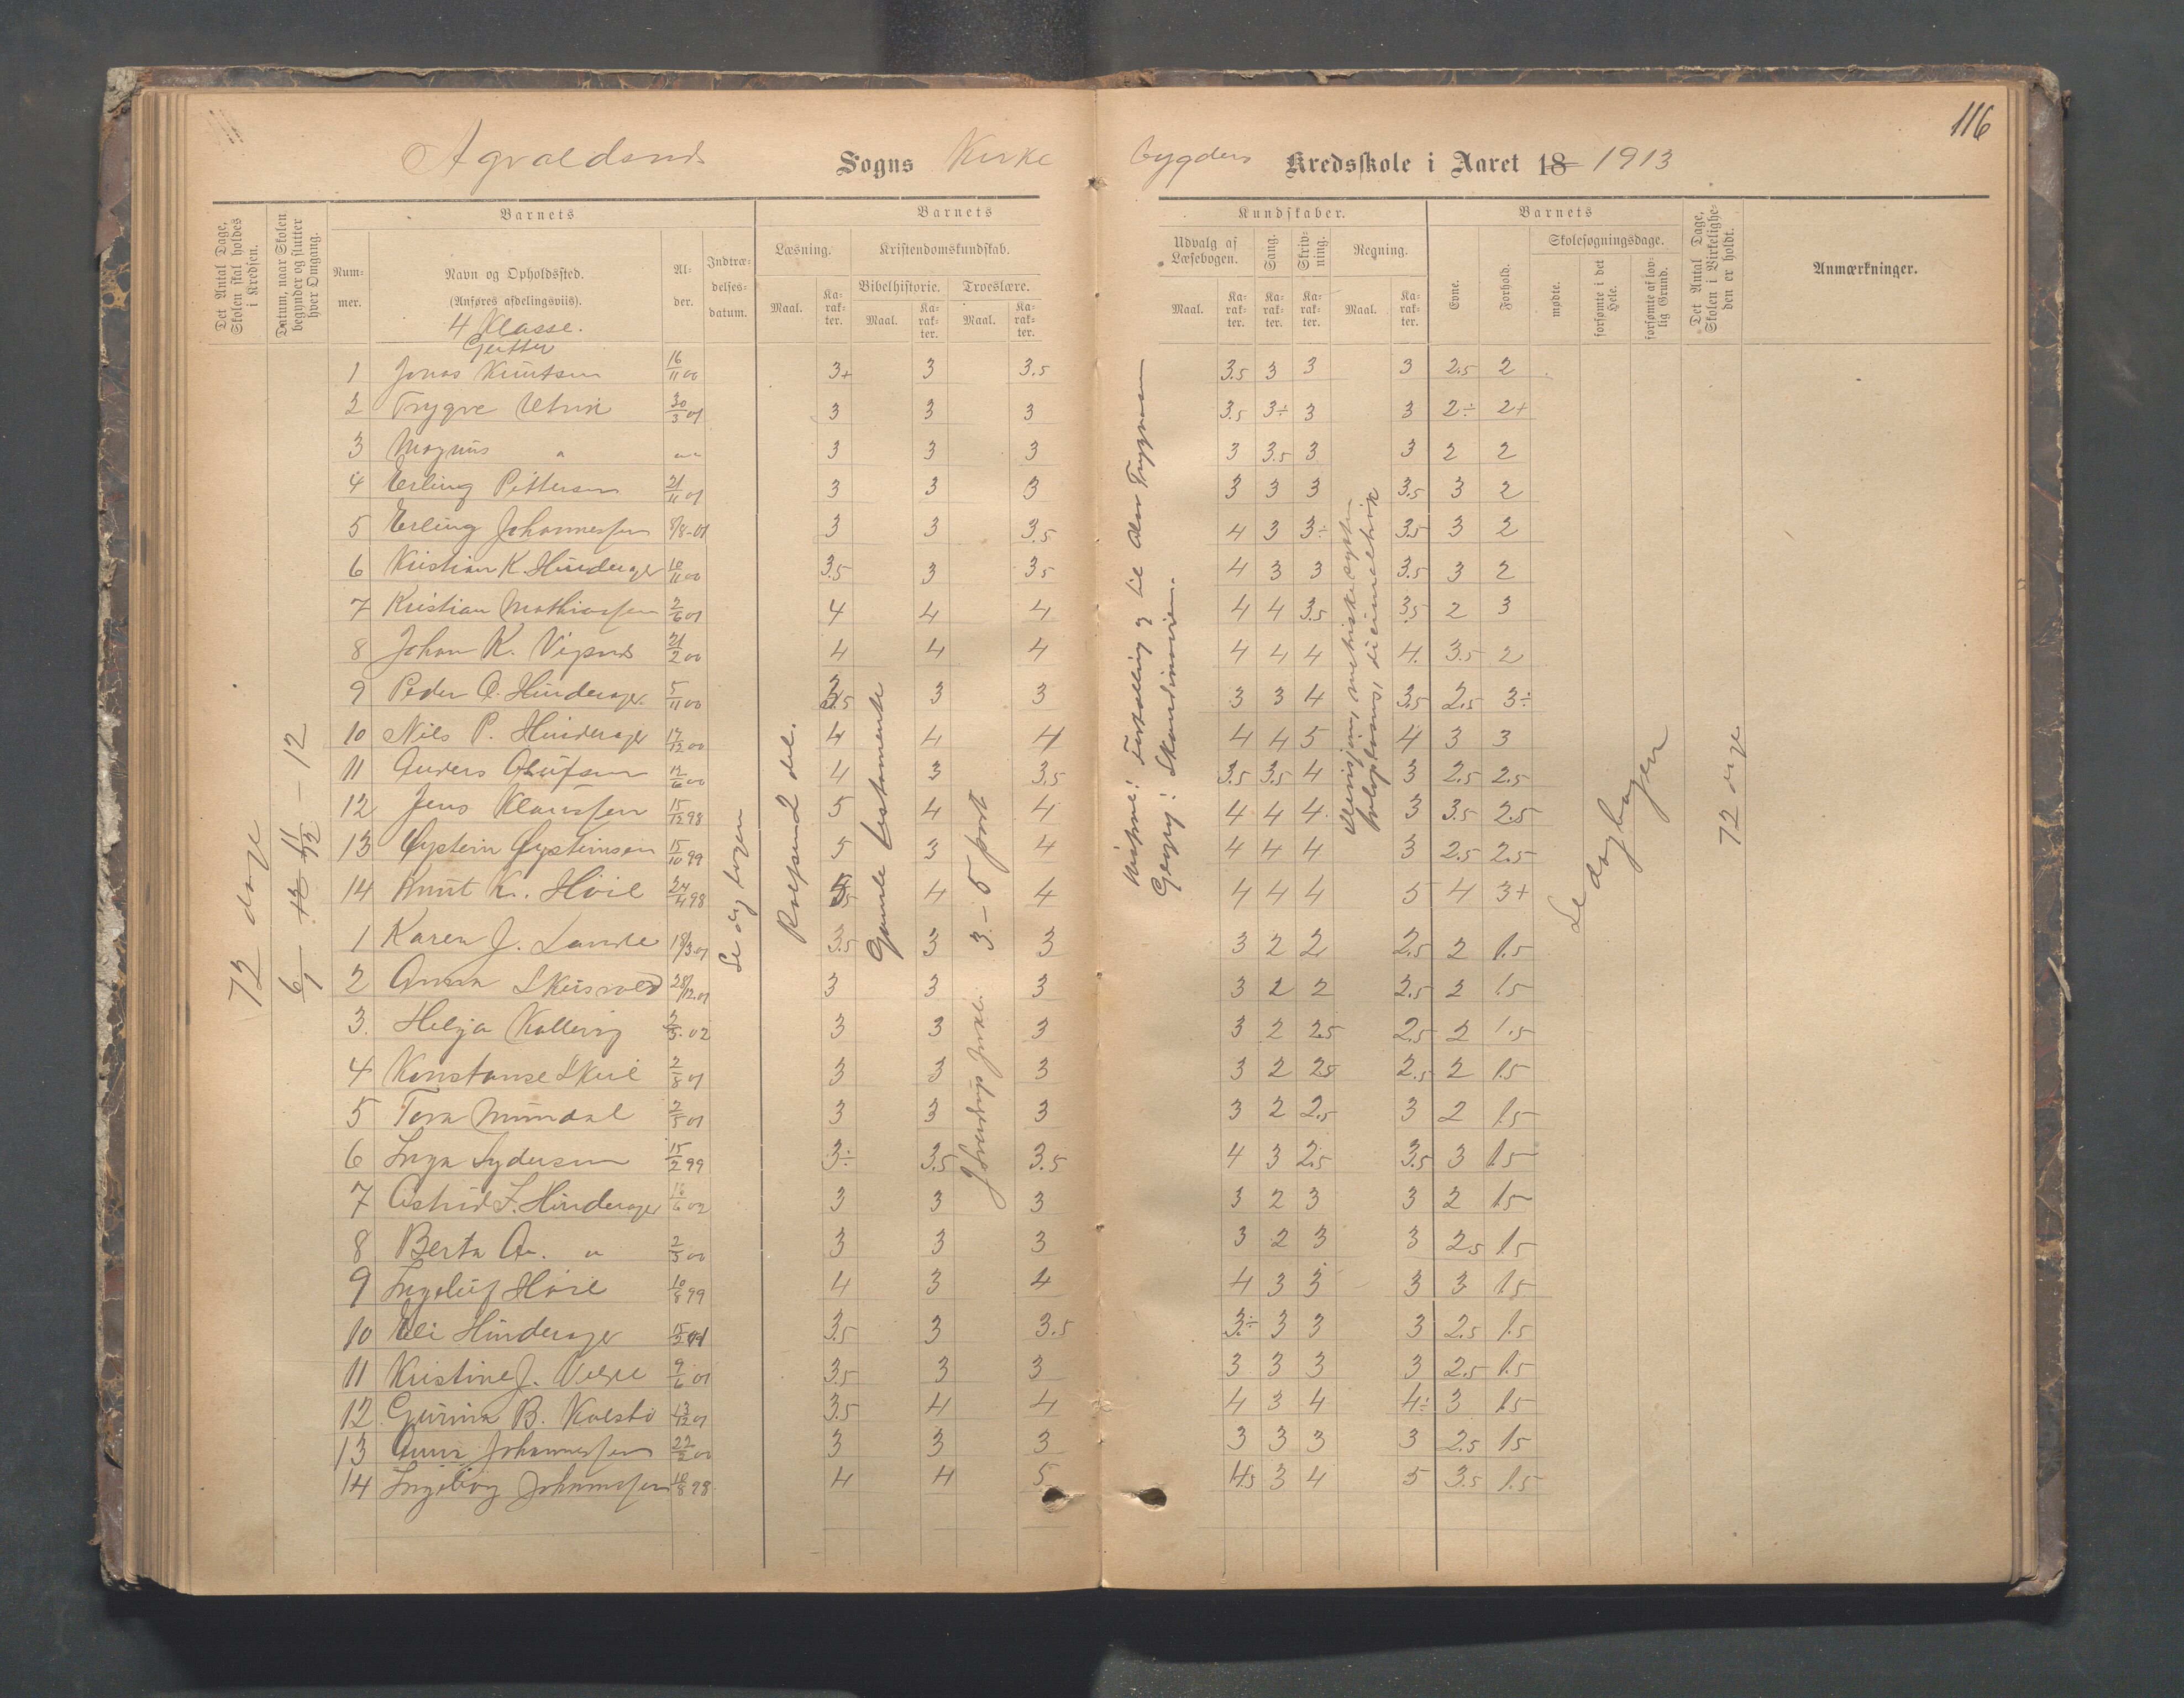 116
Agvaldsnes Sogns Kirke bygdens Kredsskole i Aaret 18 1913
Det Antal Dage, Skolen skal holdes i Kredsen.
Datum, naar Skolen begynder og slutter hver Omgang.
Barnets
Nummer.
Navn og Opholdssted.
(Anføres afdelingsviis).
Alder.
Indtrædelsesdatum.
Barnets Kundskaber.
Læsning.
Maal. Karakter.
Kristendomskundskab.
Bibelhistorie. Troeslære.
Maal. Karakter. Maal. Karakter.
Udvalg af Læsebogen.
Maal. Karakter.
Sang. Karakter.
Skrivning. Karakter.
Regning.
Maal. Karakter.
Barnets
Evne. Forhold.
Skolesøgningsdage.
mødte. forsømte i det Hele. forsømte af lovlig Grund.
Det Antal Dage, Skolen i Virkeligheden er holdt.
Anmærkninger.
4 Klasse.
Gutter
1 Jonas Knutsen 16/11 00 3+ 3 3.5 3.5 3 3 3 2.5 2
2 Trygve Utvik 30/3 01 3 3 3 3.5 3÷ 3 3 2÷ 2+
3 Magnus " " 3 3 3 3 3.5 3 3 2 2
4 Erling Pettersen 21/11 01 3 3 3 3 3 3 3.5 3 2
5 Erling Johannessen 8/8-01 3 3 3.5 4 3 3÷ 3.5 3 2
6 Kristian K. Hinderager 10/11 00 3.5 3 3.5 4 3 3 3.5 3 2
7 Kristian Mathiassen 2/6 01 4 4 4 4 4 3.5 3.5 2 3
8 Johan K. Vignes 21/2 00 4 4 4 4 4 4 4 3.5 2
9 Peder O. Hinderager 5/11 00 3.5 3 3 3 3 4 3.5 2.5 3÷
10 Nils P. Hinderager 17/12 00 4 4 4 4 4 5 4 3 3
11 Anders Olufsen 12/6 00 4 3 3.5 3.5 3.5 4 3 2.5 2.5
12 Jens Klaussen 15/12 98 5 4 4 4 4 4 3 3.5 2.5
13 Øystein Øysteinsen 15/10 99 5 3 4 4 4 4 3 2.5 2.5
14 Knut K. Høie 24/4 98 5 4 4 4 4 4 5 4 3+
1 Karen J. Lande 18/3 01 3.5 3 3 3 2 2 2.5 2 1.5
2 Anna Skeisvold 28/12.01 3 3 3 3 2 2 2.5 2 1.5
3. Helga Kallevig 2/3.02 3 3 3 3 2 2.5 2.5 2 1.5
4 Konstanse Skeie 2/8 01 3 3 3 3 2 2.5 2.5 2 1.5
5 Tora Mundal 2/5 01 3 3 3 3 2 2.5 3 2 1.5
6 Inga Sydersen 15/2 99 3÷ 3.5 3.5 4 3 2.5 3.5 3 1.5
7 Astrid S. Hinderager 16/6 02 3 3 3 3 2 3 3 2 1.5
8 Berta A. " 2/3 00 3 3 3 3 2 3 3 2.5 1.5
9 Ingeluf Høie 10/8 99 4 3 4 4 3 3 3 3 1.5
10 Eli Hinderager 15/2 3.5 3 3.5 3÷ 3 3 3 2.5 1.5
11 Kristine J. Velde 9/6 01 3.5 3 3 3 3 3 3 2.5 1.5
12 Gurina B. Kolstø 13/12 01 3.5 4 4 4 3 4 4÷ 3 1.5
13 Anna Johannessen 22/2 00 3 3 3 3 3 3 3 2.5 1.5
14 Ingeborg Johannessen 10/8 98 4 4 5 4.5 3 4 5 3.5 1.5
72 dage
6/1 - 12 11/12 - 12
Se dagbogen
Rolfsen 2 del.
Gamle testamente
3 - 5 part
J. Sverdrups forkl.
Geogr.: Skandinavien.
Se dagbogen
72 dage